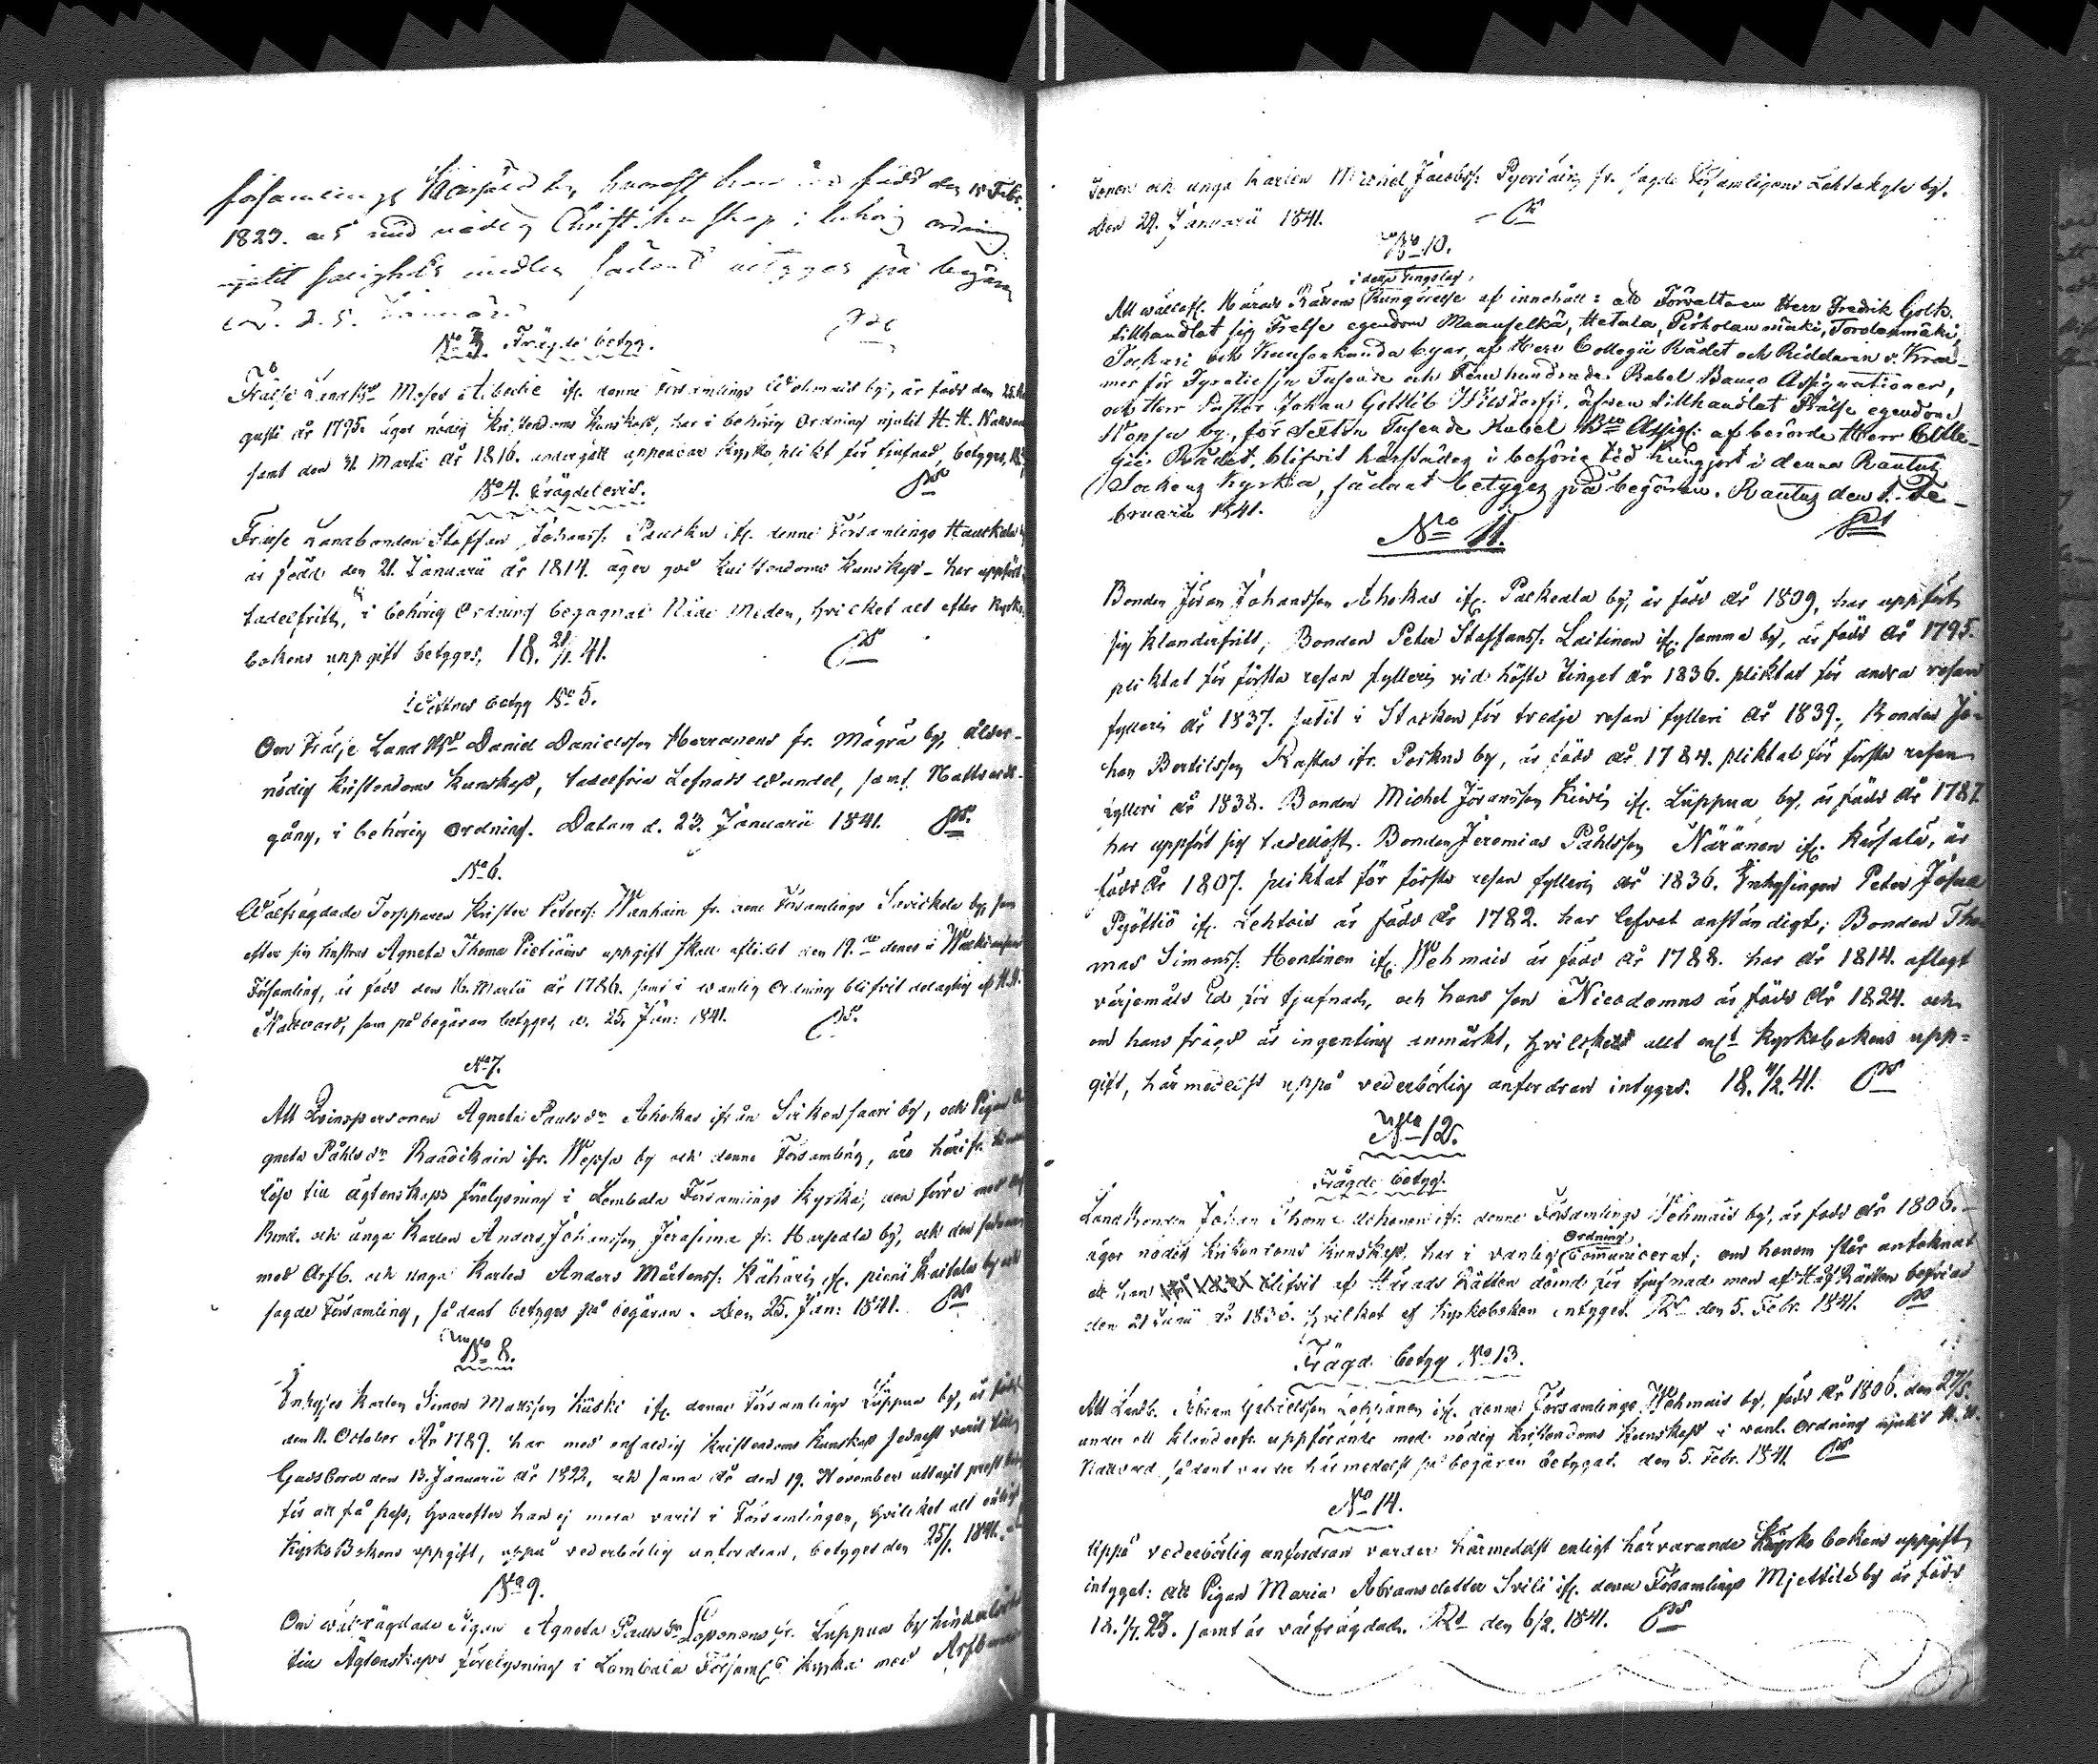 församlings hvarest han är född den 15 Febr.
1823. och med nödig Christ. kunskap i behörig ordning
njutit salighets medlen sådant betyges på begäran
d. 25. Januari
No 3. Frägde betyg.
Frälse Landb. Moses ifr. denne Församlings Wehmais by, är född den
gusti år 1795. äger nödig Kristendoms kunskap, har i behörig ordning njutit H. H. Nattvard
samt den 31 Martii år 1816. undergått uppenbar Kyrkoplikt för tjufnad, betyges,
No 4. Frägdebevis.
Frälse Landbonden Staffan Johanss. Paucku ifr. denne Församlings
är född den 21. Januarii år 1814. äger god Kristendoms kunskap – har uppfört
tadelfritt, i behörig ordning begagnat Nåde Meden, hvilket allt efter Kyrko
bokens uppgift betyges, 18. 21/1. 41.
Wittnes betyg No 5.
Om Frälse Landb. Daniel Danielsson Herranens fr. Mägrä by, ålder
nödig kristendoms kunskap, tadelfria Lefnads wandel, samt Nattvards
gång, i behörig ordning. Datum d. 23. Januarii 1841.
No 6.
Wälfrägdade Torpparen Krister Peterss. Wanhain fr. denne Församlings Savickola by, som
efter sin hustrus Agneta Thoma Pietiäins uppgift skall aflidit den 19.de dennes i
Församling, är född den 16. Martii år 1786. samt i wanlig ordning blifvit delagtig af H. H.
Nattvard, som på begäran betyges, d. 25. Jan: 1841.
No 7.
Att Qvinspersonen Agneta Paulsdr Ahokas ifrån Sirkensaari by, och Pigan A
gneta Påhlsdr Raadikain ifr. Wepsa by och denne Församling, äro härifr. hinder
löse till ägtenskaps förelysning i Lembala Församlings Kyrka, den förre med
Bond. och unga Karlen Anders Johansson Jerasima fr. Harpala by, och den sednare
med Arfb. och unga Karlen Anders Mårtenss. Kähäris ifr. pieni Kaitala by och
sagde Församling, sådant betyges på begäran. Den 25. Jan: 1841.
No 8.
Inhyses Karlen Simon Mattsson Kuski ifr. denne Församlings Lüppua by, är född
den 11. October År 1789. har med enfaldig Kristendoms kunskap sednast varit till
Guds Bord den 13. Januarii år 1822, och sama år den 19. November uttagit prest
för att få pass, hvarefter han ej mera varit i Församlingen, hvilket allt enligt
Kyrko Bokens uppgift, uppå vederbörlig anfordran, betyges den 25/1. 1841.
No 9.
Om wälfrägdade Pigan Agneta Paulsdr Loponens fr. Lüppua by hinderlöshet
till Ägtenskaps förelysning i Lembala Församls Kyrka med Arfb
Sonen och unga Karlen Michel Jacobss. Pyöriäin fr. sagde Församlingens Lehtokylä by.
den 29. Januarii 1841.
No 10.
i detta Tingslag
Att wällofl. Härads Rättens Kungörelse af innehåll: att Förvaltaren Herr Fredrik Golk.
tillhandlat sig Frelse egendom Maanselkä, Hetala, Pirholanmäki, Torolanmäki,
Torkasi och Kausankanda byar, af Herr Collegii Rådet och Riddaren v. Krae-
mer för Fyratiesju Tusende och Femhundrade Rubel Banco Assignationer,
och Herr Pastor Johan Gottlib Hilsdorff, äfven tillhandlat Frälse egendom
Nopsa by, för Sextin Tusende Rubel Bco Assigl. af berörde Herr Colle-
gii Rådet, blifvit härstädes i behörig tid kungjort i denna Rautus
Sockens Kyrka, sådant betyges på begäran. Rautus den 1. Fe-
bruarii 1841.
No 11.
Bonden Jöran Johansson Ahokas ifr. Palkeala by, är född år 1809, har uppfört
sig klanderfritt; Bonden Peter Staffanss. Laitinen ifr. samma by, är född år 1795.
pliktat för första resan fylleri vid höste Tinget år 1836. pliktat för andra resan
fylleri år 1837. sutit i Stocken för tredje resan fylleri år 1839., Bonden Jo-
han Bertilsson Rastas ifr. Porkus by, är född år 1784. pliktat för första resan
fylleri år 1838. Bonden Michel Jöransson Kiwis ifr. Lüppua by, är född år 1787.
har uppfört sig tadellöst. Bonden Jeremias Påhlsson Näränen ifr. Kersalä, är
född år 1807. pliktat för första resan fylleri år 1836. Inhysingen Peter Josua
Pyöttiö ifr. Lehtois är född år 1782. har lefvat anständigt; Bonden Tho-
mas Simonss. Hentinen ifr. Wehmais är född år 1788. har år 1814. aflagt
värjemåls Ed för tjufnad, och hans son Nicodemus är född år 1824. och
om hans frägd är ingenting anmärkt, hvilket allt enl. Kyrkobokens upp=
gift, härmedelst uppå vederbörlig anfordran intyges. 18. 4/2. 41.
No 12.
Frägde betyg.
Landbonden Johan Thome Ahonen ifr. denne Församlings Wehmais by, är född år 1806.
äger nödig kristendoms kunskap, har i vanlig ordning communicerat; om honom står antecknat
att han blifvit af Härads Rätten dömd för tjufnad men af Hof Rätten befriad
den 21 Junii år 1836. hvilket af Kyrkoboken intyges. Rs den 5. Febr. 1841.
Frägd. betyg No 13.
Att Landb. Abram Gabrielsson Leppänen ifr. denne Församlings Wehmais by, född år 1806. den 27/5.
under ett klanderfr. uppförande med nödig Kristendoms kunskap i vanl. ordning njutit H. H.
Nattvard, sådant varder härmedelst på begäran betygat. den 5. Febr. 1841
No 14.
Uppå vederbörlig anfordran varder härmedelst enligt härvarande Kyrko bokens uppgift
intyget: att Pigan Maria Abrams dotter Svili ifr. denne Församlings Mjettilä by är född
18. 1/7. 23. samt är välfrägdad. Rs den 6/2. 1841.